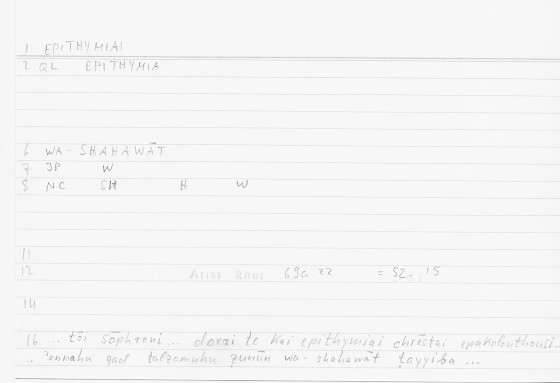 1 EPITHYMIAI
2 QL EPITHYMIA
6 WA-SHAHAWĀT
7 JP W
8 NC SH H W
11
12 Arist Rhet 69a 22 = 52., 15
14
16 .. tōi sōphroni... doxai te kai epithymiai chrēstai epakolouthousi..
.. 'annahu qad talzamuhu ẓunūn wa-shahawāt ṭayyiba ...